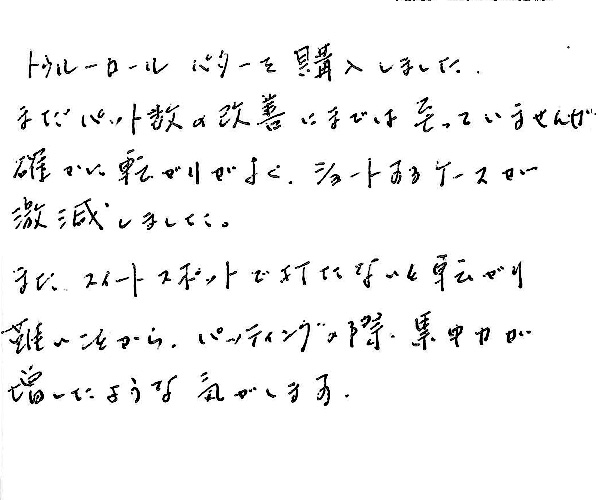 トゥルーロール パターを購入しました.
まだパット数の改善にまでは至っていませんが
確かに転がりがよく、ショートするケースが
激減しました。
また、スイートスポットで打たないと転がり
難いことから、パッティングの際、集中力が
増したような気がします.